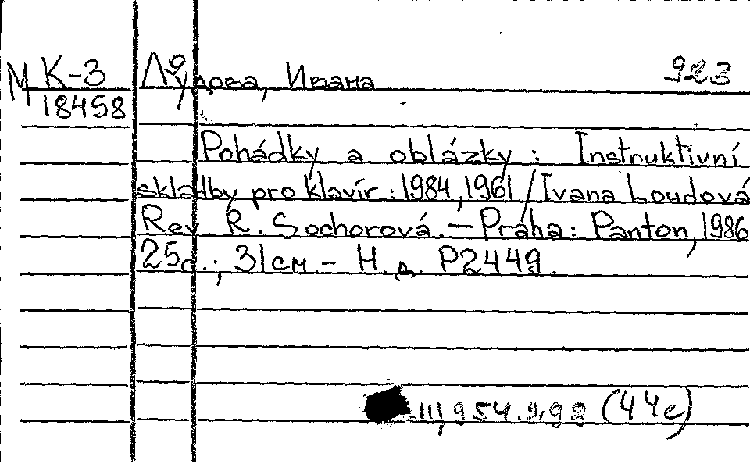 М К-3 Лоудова, Ивана 923
18458
Pohádky a oblázky : Instruktivní
skladby pro klavír : 1984, 1961 / Ivana Loudová
Rev. R. Sochorová. – Práha : Panton, 1986
25с. ; 31см. – Н. д. P2449.
(44е)